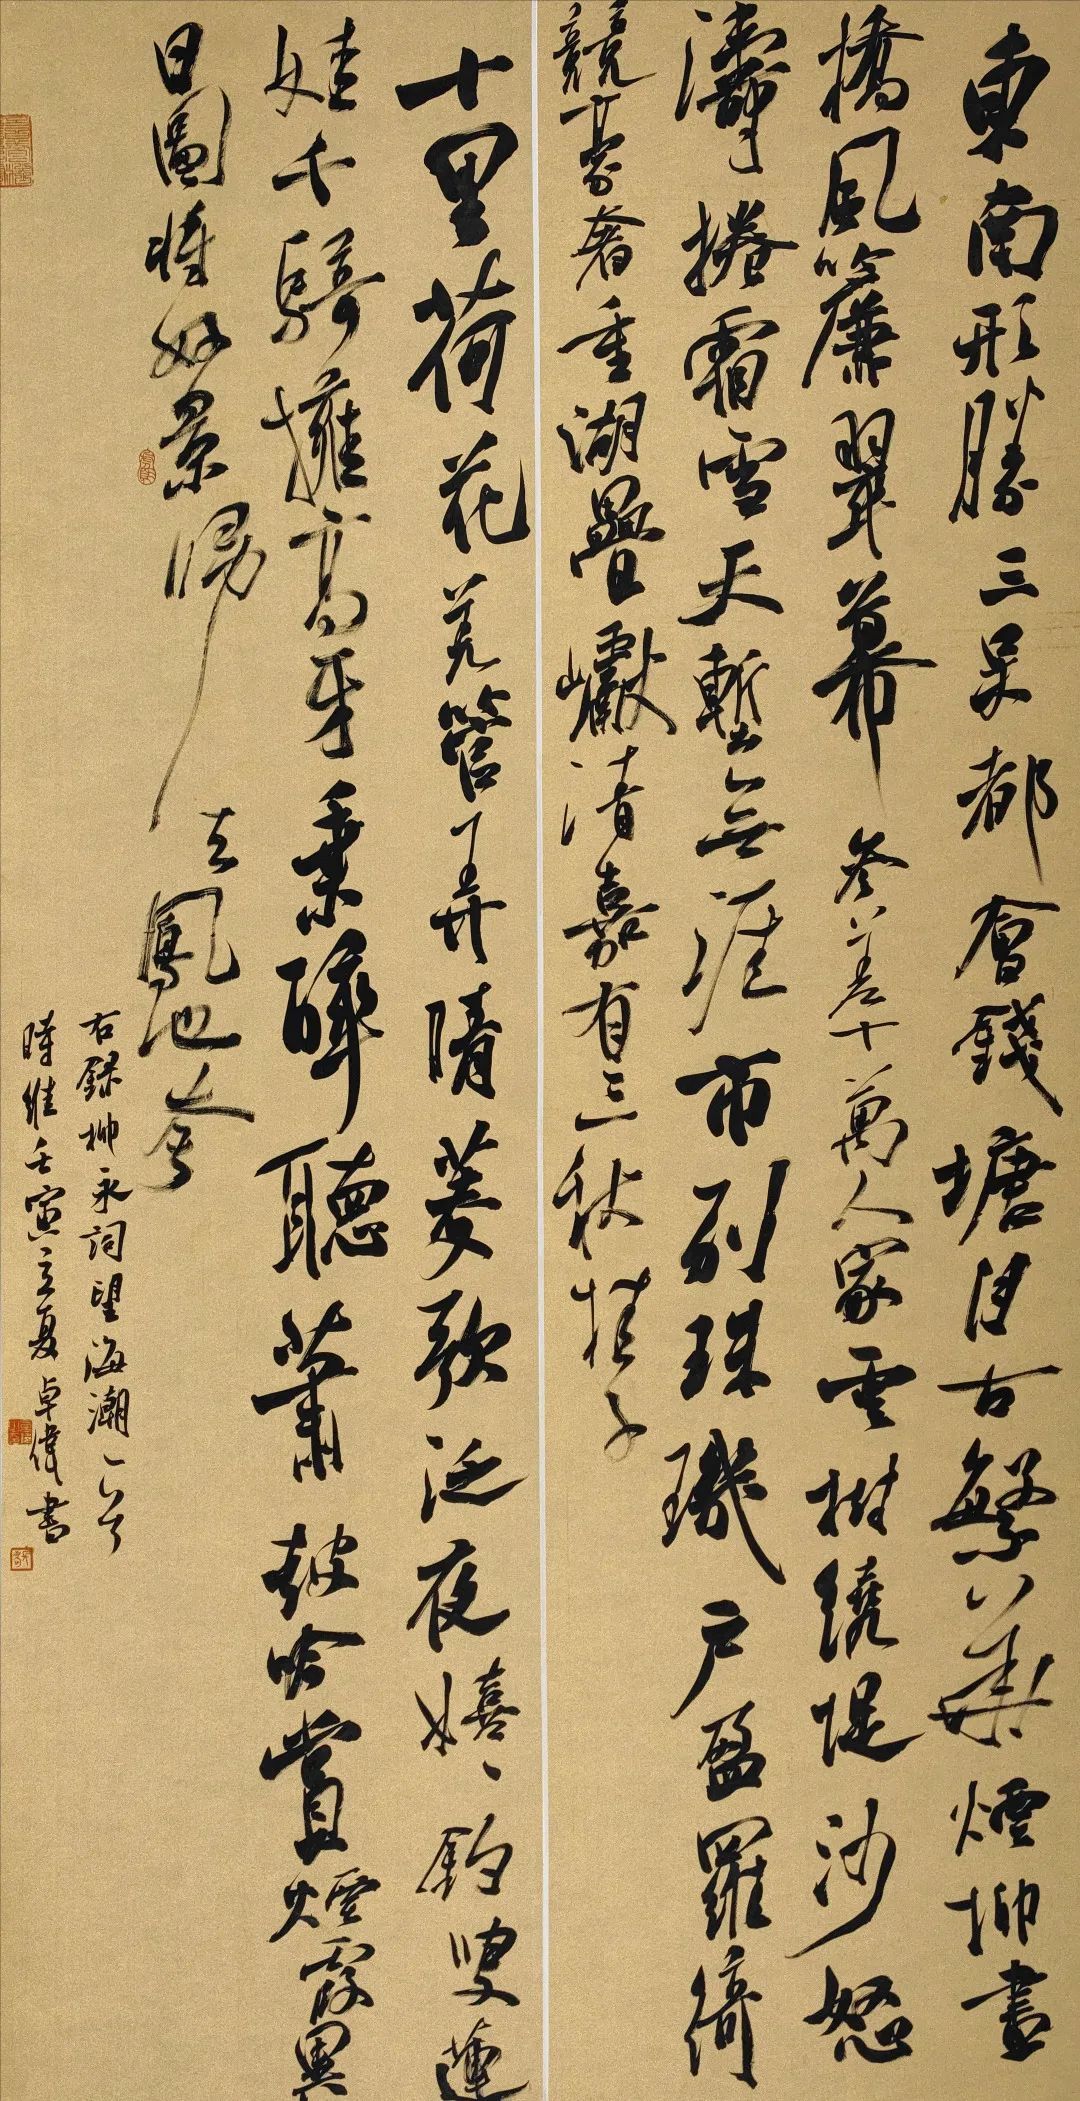 東南形勝三吴都會錢塘自古繁華煙柳畫
橋風簾翠幕參差十萬人家雲樹繞堤沙怒
濤捲霜雪天塹無涯市列珠璣户盈羅綺
競豪奢重湖疊巘清嘉有三秋桂子
十里荷花羌管弄晴菱歌泛夜嬉嬉釣叟蓮
娃千騎擁高牙乘醉聽蕭鼓吟賞煙霞異
日圖將好景歸去鳳池夸
右録柳永詞望海潮一首
時維壬寅立夏卓偉書